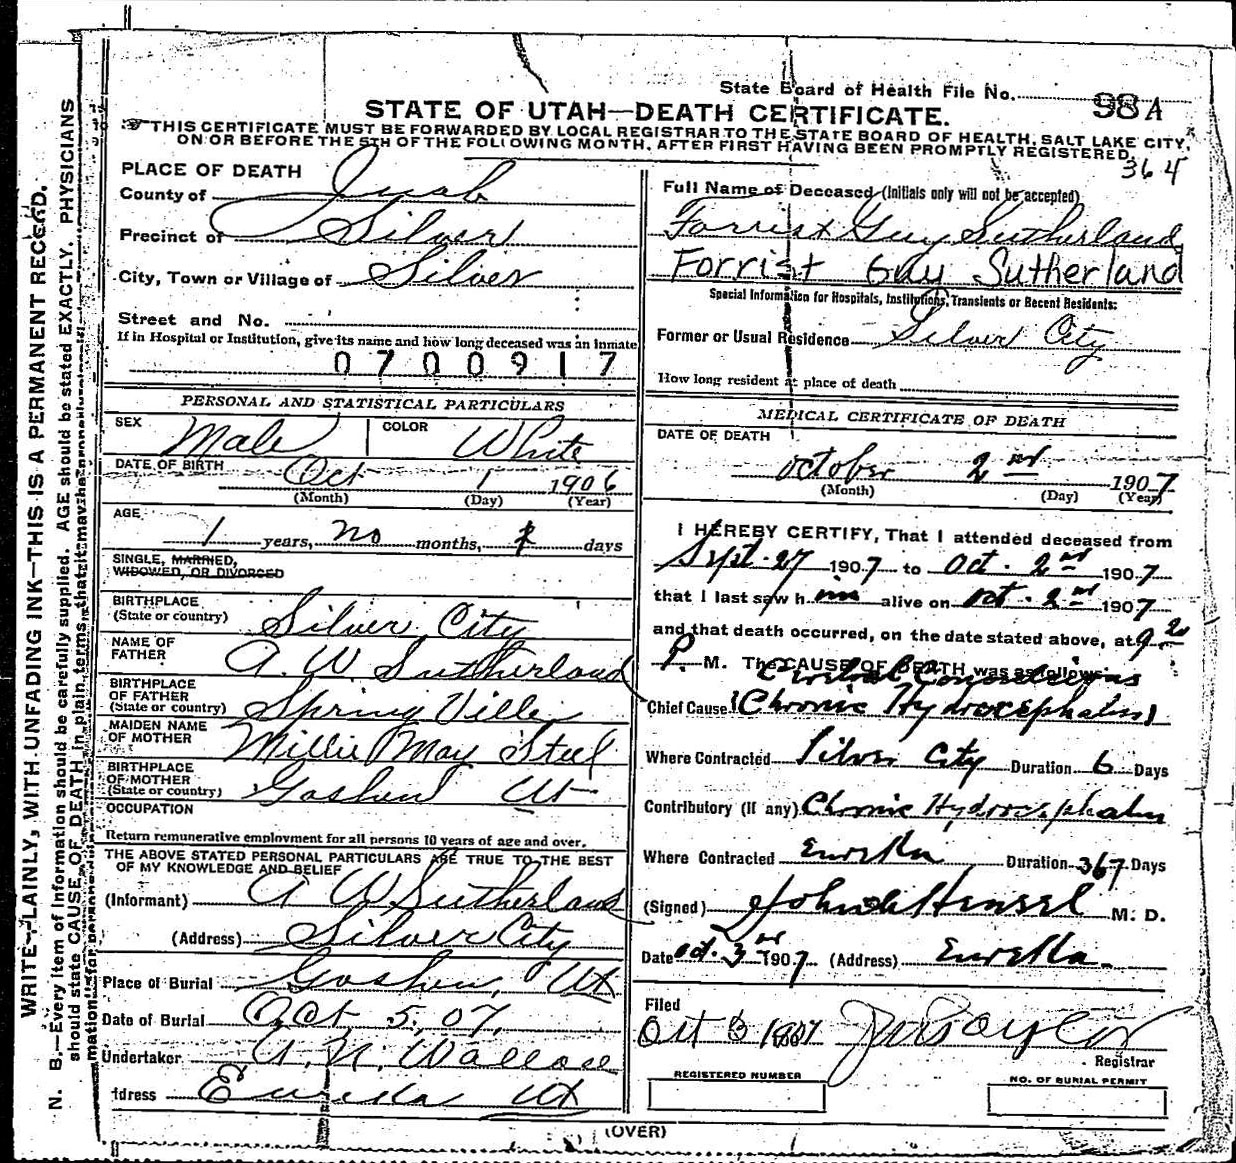 State Board of Health File No. 98 A
STATE OF UTAH—DEATH CERTIFICATE.
THIS CERTIFICATE MUST BE FORWARDED BY LOCAL REGISTRAR TO THE STATE BOARD OF HEALTH, SALT LAKE CITY,
ON OR BEFORE THE 5TH OF THE FOLLOWING MONTH, AFTER FIRST HAVING BEEN PROMPTLY REGISTERED.
364
WRITE PLAINLY, WITH UNFADING INK—THIS IS A PERMANENT RECORD.
N. B.—Every item of information should be carefully supplied. AGE should be stated EXACTLY. PHYSICIANS
should state CAUSE OF DEATH in plain terms, that it may be
PLACE OF DEATH
County of Juab
Precinct of Silver
City, Town or Village of Silver
Street and No.
If in Hospital or Institution, give its name and how long deceased was an inmate
0700917
PERSONAL AND STATISTICAL PARTICULARS
SEX Male COLOR White
DATE OF BIRTH Oct 1 1906
(Month) (Day) (Year)
AGE
1 years, no months, 1 days
SINGLE, MARRIED,
WIDOWED, OR DIVORCED
BIRTHPLACE
(State or country) Silver City
NAME OF
FATHER A. W. Sutherland
BIRTHPLACE
OF FATHER
(State or country) Spring Ville
MAIDEN NAME
OF MOTHER Millie May Steel
BIRTHPLACE
OF MOTHER
(State or country) Goshen Ut
OCCUPATION
Return remunerative employment for all persons 10 years of age and over.
THE ABOVE STATED PERSONAL PARTICULARS ARE TRUE TO THE BEST
OF MY KNOWLEDGE AND BELIEF
(Informant) A W Sutherland
(Address) Silver City
Place of Burial Goshen, Ut
Date of Burial Oct 5, 07.
Undertaker A. N. Wallace
ddress Eureka Ut
Full Name of Deceased (Initials only will not be accepted)
Forrist Guy Sutherland
Forrist Guy Sutherland
Special Information for Hospitals, Institutions, Transients or Recent Residents:
Former or Usual Residence Silver City
How long resident at place of death
MEDICAL CERTIFICATE OF DEATH
DATE OF DEATH
October 2nd 1907
(Month) (Day) (Year)
I HEREBY CERTIFY, That I attended deceased from
Sept. 27 1907 to Oct. 2nd 1907
that I last saw him alive on Oct. 2nd 1907
and that death occurred, on the date stated above, at 9 20
P. M. The CAUSE OF DEATH was as follows:
Convulsions
Chief Cause (Chronic Hydrocephalus)
Where Contracted Silver City Duration 6 Days
Contributory (If any) Chronic Hydrocephalus
Where Contracted Eureka Duration 367 Days
(Signed) M. D.
Date Oct. 3rd 1907 (Address) Eureka
Filed
Oct 3 1907
Registrar
REGISTERED NUMBER
NO. OF BURIAL PERMIT
(OVER)